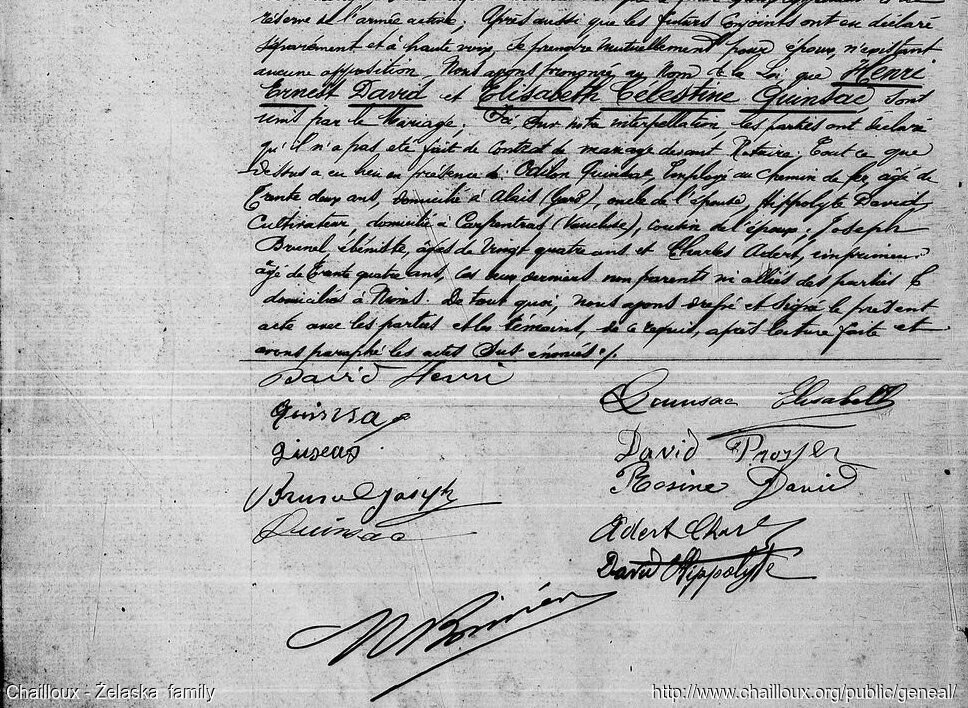 réserve de l'armée active; Après aussi que les futurs Conjoints ont eu déclaré
séparément et à haute voix, se prendre mutuellement pour époux, n'existant
aucune opposition, Nous avons prononcé au Nom de la Loi que Henri
Ernest David et Elisabeth Célestine Quinsac sont
unis par le Mariage; Ici, sur notre interpellation, les parties ont déclaré
qu'il n'a pas été fait de Contrat de mariage devant Notaire. Tout ce que
dessus a eu lieu en présence de Odilon Quinsac, Employé au Chemin de fer, âgé de
Trente deux ans, domicilié à Alais (Gard), oncle de l'épouse, Hippolyte David,
Cultivateur, domicilié à Carpentras (Vaucluse), cousin de l'époux; Joseph
Brunel, ébéniste, âgés de Vingt quatre ans et Charles Adert, imprimeur
âgé de trente quatre ans, ces deux derniers non parents ni alliés des parties &
domiciliés à Nîmes. De tout quoi, nous avons dressé et signé le présent
acte avec les parties et les témoins, de ce requis, après lecture faite et
avons paraphé les actes sus énoncés ./.
David Henri
Quinsac Elisabeth
Quinsac
David
Rosine David
Brunel Joseph
Quinsac
Adert Charles
David Hippolyte
Chailloux - Żelaska family
http://www.chailloux.org/public/geneal/